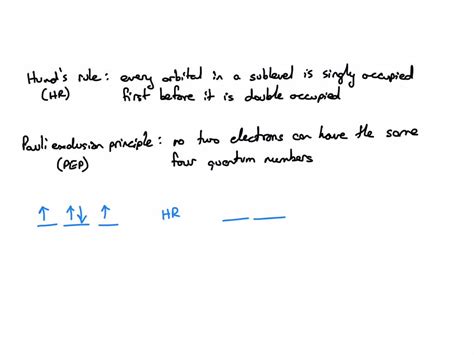 Hund's rule: every orbital in a sublevel is singly occupied
(HR) first before it is double occupied
Pauli exclusion principle: no two electrons can have the same
(PEP) four quantum numbers
↑ ↑↓ ↑ HR